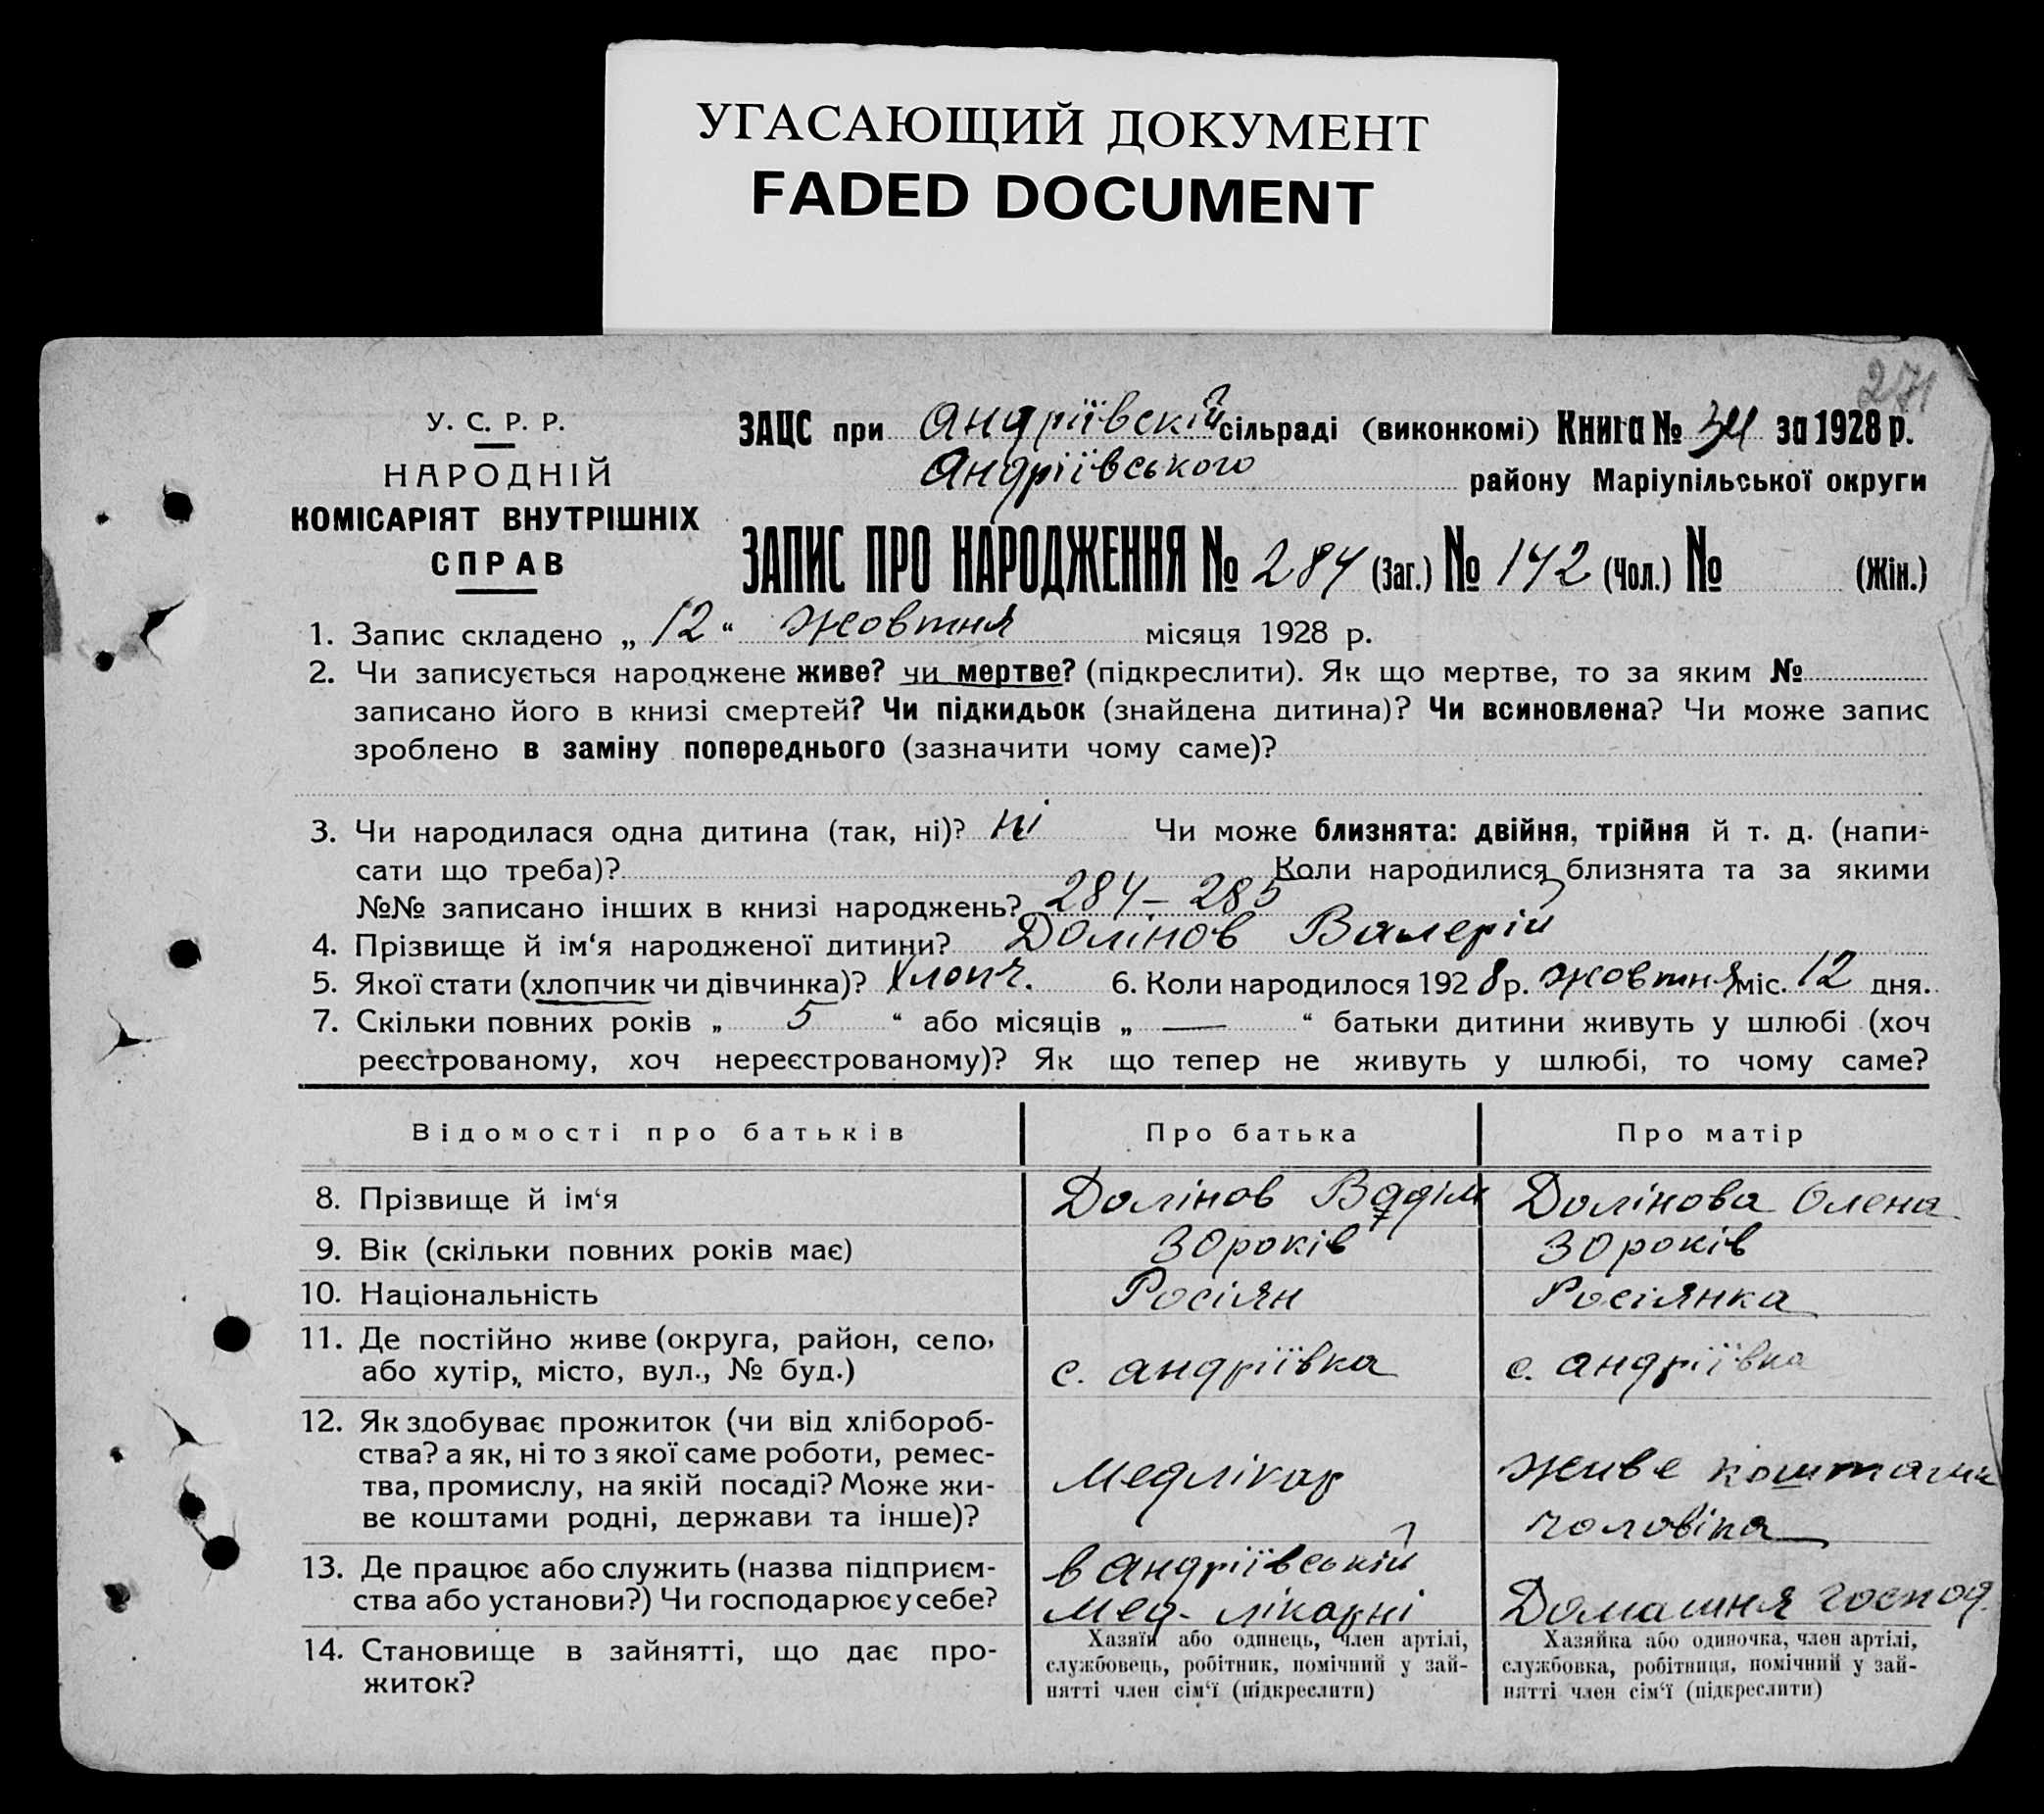 УГАСАЮЩИЙ ДОКУМЕНТ
FADED DOCUMENT
271
У. С. Р. Р.
НАРОДНІЙ
КОМІСАРІЯТ ВНУТРІШНІХ
СПРАВ
ЗАЦС при Андріївскій сільраді (виконкомі) Книга № за 1928 р.
Андріївського району Маріупільської округи
ЗАПИС ПРО НАРОДЖЕННЯ № 284 (Заг.) № 142 (Чол.) № (Жін.)
1. Запис складено „ 12 “ жовтня місяця 1928 р.
2. Чи записується народжене живе? чи мертве? (підкреслити). Як що мертве, то за яким №
записано його в книзі смертей? Чи підкидьок (знайдена дитина)? Чи всиновлена? Чи може запис
зроблено в заміну попереднього (зазначити чому саме)?
3. Чи народилася одна дитина (так, ні)? ні Чи може близнята: двійня, трійня й т. д. (напи-
сати що треба)? Коли народилися близнята та за якими
№№ записано інших в книзі народжень? 284 – 285
4. Прізвище й ім‘я народженої дитини? Долінов Валерій
5. Якої стати (хлопчик чи дівчинка)? Хлопч. 6. Коли народилося 1928 р. жовтня міс. 12 дня.
7. Скільки повних років „ 5 “ або місяців „ — “ батьки дитини живуть у шлюбі (хоч
реєстрованому, хоч нереєстрованому)? Як що тепер не живуть у шлюбі, то чому саме?
Відомості про батьків Про батька Про матір
8. Прізвище й ім‘я Долінов Вадім Долінова Олена
9. Вік (скільки повних років має) 30 років 30 років
10. Національність Росіян Росіянка
11. Де постійно живе (округа, район, село,
або хутір, місто, вул., № буд.) с. Андріївка с. Андріївка
12. Як здобуває прожиток (чи від хлібороб-
ства? а як, ні то з якої саме роботи, ремес-
тва, промислу, на якій посаді? Може жи- Медлікар живе коштами
ве коштами родні, держави та інше)? чоловіка
13. Де працює або служить (назва підприєм- в Андріївській
ства або установи?) Чи господарює у себе? Мед- лікарні Домашня господ.
14. Становище в зайнятті, що дає про-
житок?
Хазяїн або одинець, член артілі,
службовець, робітник, помічний у зай-
нятті член сім‘ї (підкреслити)
Хазяйка або одиночка, член артілі,
службовка, робітниця, помічний у зай-
нятті член сім‘ї (підкреслити)